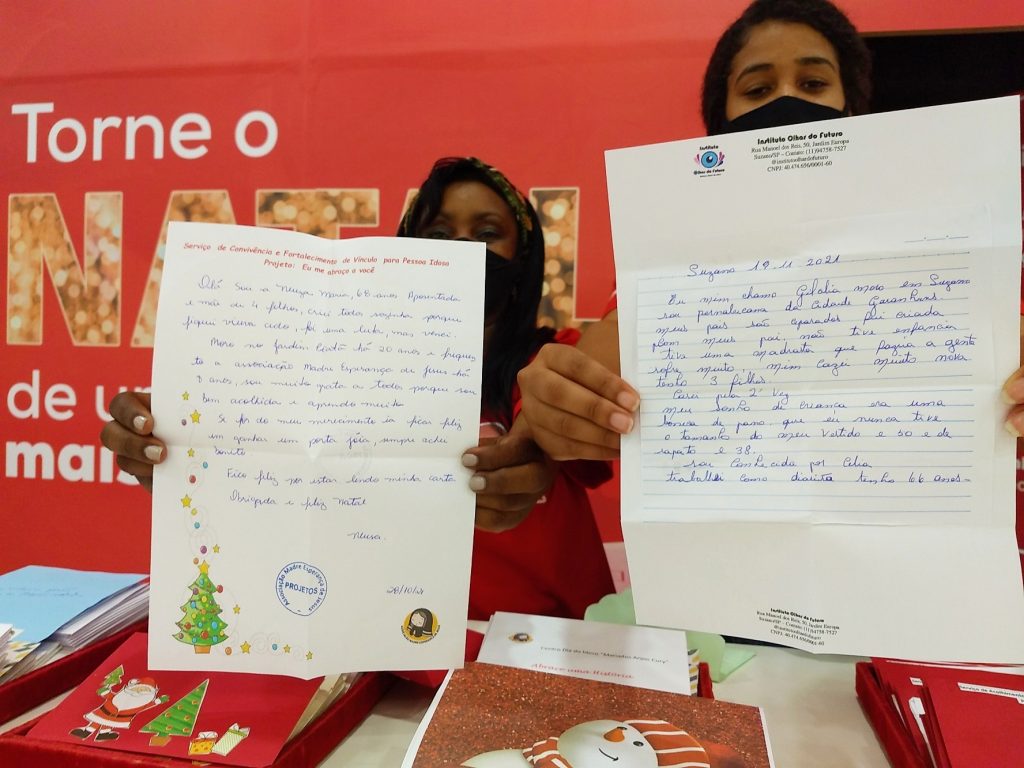 Torne o
NATAL
de u
mais
Serviço de Convivência e Fortalecimento de Vínculo para Pessoa Idosa
Projeto: Eu me abraço a você
Olá! Sou a Neuza Maria, 68 anos Aposentada
e mãe de 4 filhos, criei todos sozinha porque
fiquei viúva cedo, foi uma luta, mas venci.
Moro no Jardim há 20 anos e frequen
to a associação Madre Esperança de Jesus há
8 anos, sou muito grata a todos porque sou
bem acolhida e aprendo muito
Se for do meu merecimento ia ficar feliz
em ganhar um porta jóia, sempre achei
bonito.
Fico feliz por estar lendo minha carta
Obrigada e feliz natal
Neusa.
28/10/21
Associação Madre Esperança de Jesus
PROJETOS
Instituto
Olhar do Futuro
Instituto Olhar do Futuro
Rua Manoel dos Reis, 50, Jardim Europa
Suzano/SP – Contato: (11)94758-7527
@institutoolhardofuturo
CNPJ: 40.474.656/0001-60
Suzano 19.11.2021
Eu mim chamo Gilalia moro em Suzano
sou pernabucana da Cidade Garanhuns
meus pais são separados fui criada
com meus pai, não tive enfancia
tive uma madrasta que fazia a gente
sofre muito. mim cazei muito nova
tenho 3 filhos.
Casei pela 2ª Vez
meu sonho de criança era uma
boneca de pano que eu nunca tive
o tamanho do meu vestido e 50 e de
sapato e 38.
sou Conhecida por Celia
trabalhei como diarista tenho 66 anos-
Instituto Olhar do Futuro
Rua Manoel dos Reis, 50, Jardim Europa
Suzano/SP – Contato: (11)94758-7527
@institutoolhardofuturo
CNPJ: 40.474.656/0001-60
Centro Dia do Idoso "Marcelus Anjos Cury"
Abrace uma História
Serviço de Acolhimento